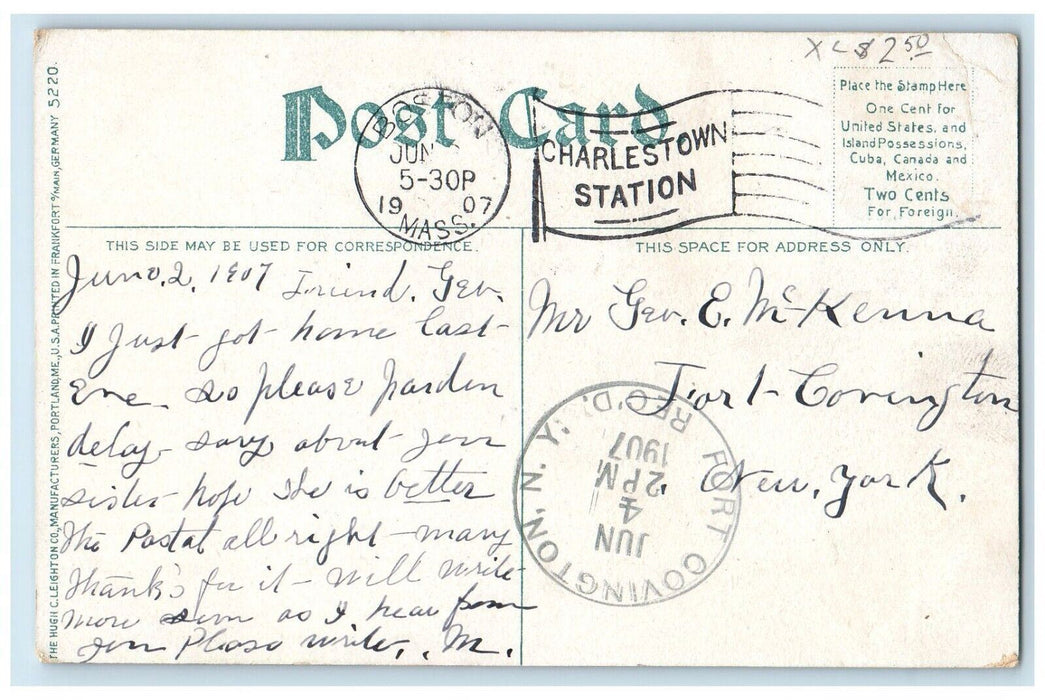 X L $2.50
Post Card
BOSTON
JUN
5-30P
1907
MASS.
CHARLESTOWN
STATION
Place the Stamp Here
One Cent for
United States, and
Island Possessions,
Cuba, Canada and
Mexico.
Two Cents
For Foreign.
THIS SIDE MAY BE USED FOR CORRESPONDENCE.
THIS SPACE FOR ADDRESS ONLY.
THE HUGH C. LEIGHTON CO., MANUFACTURERS, PORTLAND, ME., U.S.A. PRINTED IN FRANKFORT o/MAIN, GERMANY 5220.
June, 2, 1907 Friend, Geo.
I Just got home last
Eve so please pardon
delay sorry about your
sister hope she is better
The Postal all right many
Thank's for it will write
more soon as I hear from
you Please write, M.
Mr Geo. E. McKenna
Fort Covington
New, York.
FORT COVINGTON, N. Y. REC'D.
JUN
4
2PM
1907